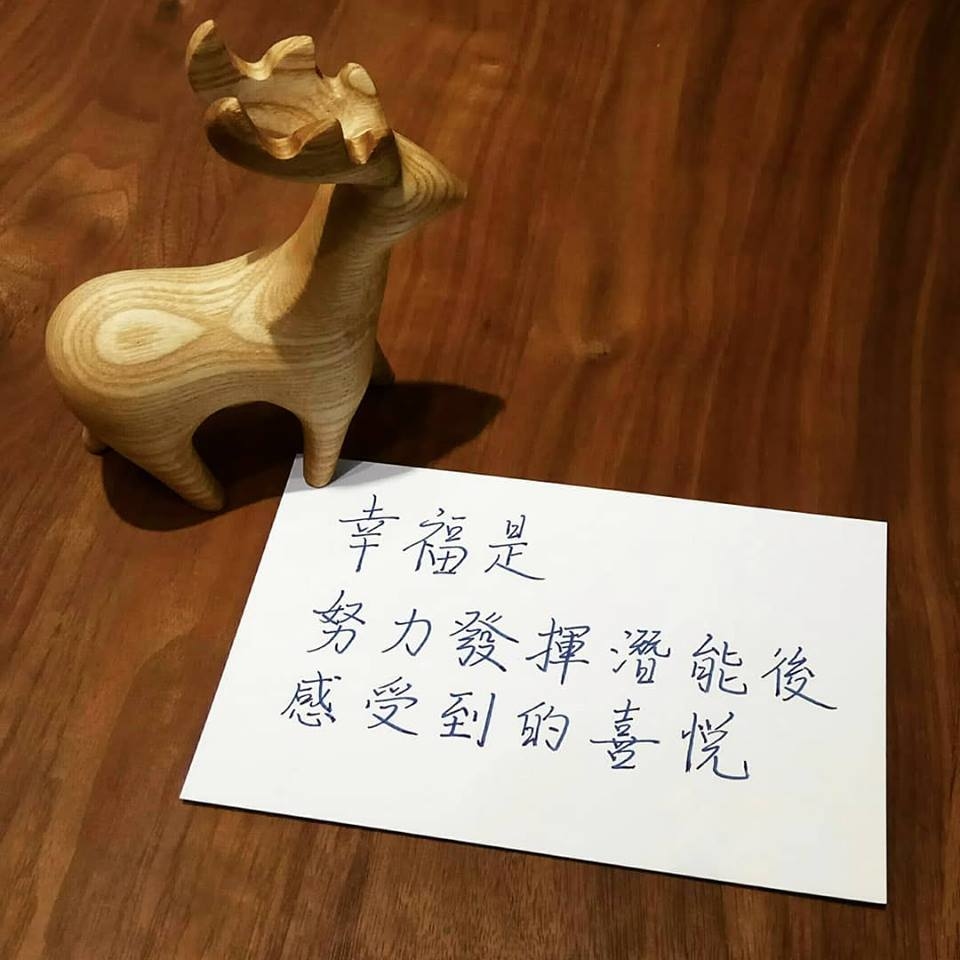 幸福是
努力發揮潛能後
感受到的喜悅